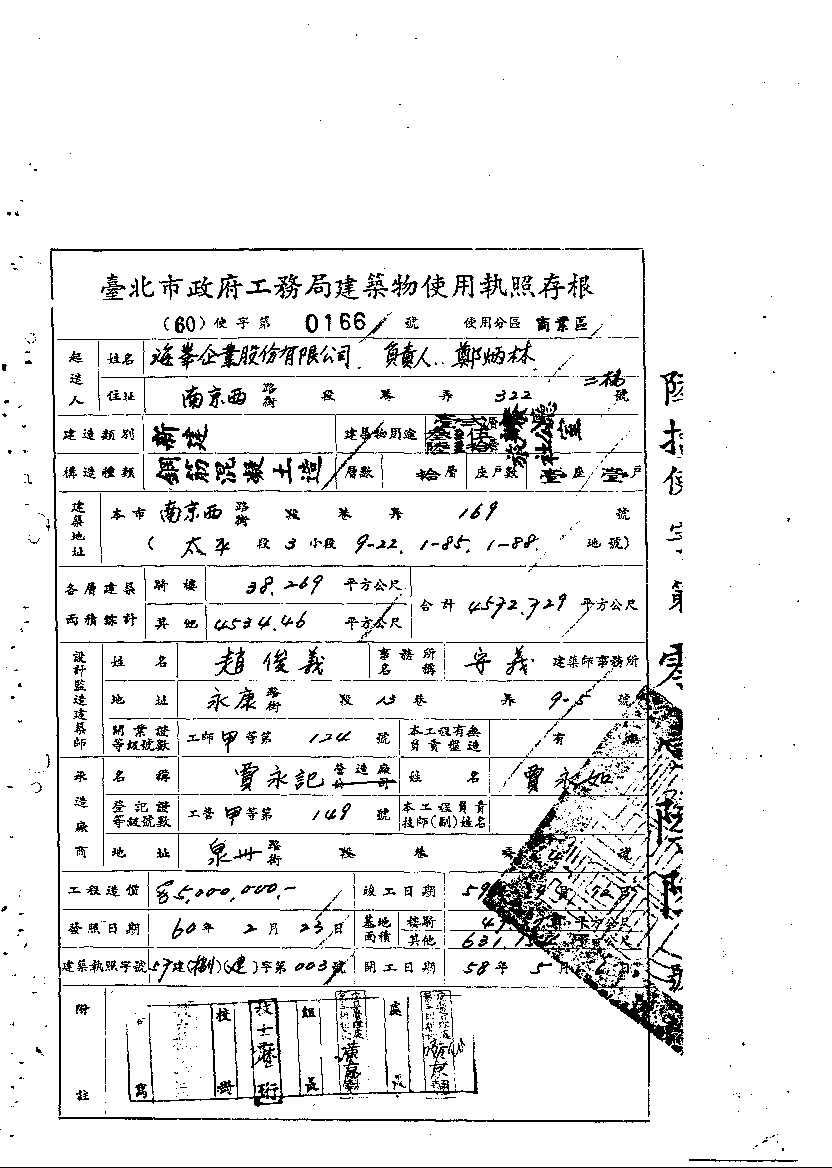 臺北市政府工務局建築物使用執照存根
(60)使字第 0166 號 使用分區 商業區
起造人 姓名 海華企業股份有限公司. 負責人.. 鄭炳林
住址 南京西 路街 段 巷 弄 322 號 二樓
建造類別 新建 建築物用途
構造種類 鋼筋混凝土造 層數 拾層 座戶數 壹座 壹戶
建築地址 本市 南京西 路街 段 巷 弄 169 號
( 太平 段 3 小段 9-22. 1-85. 1-88. 地號)
各層建築面積綜計 騎樓 38.269 平方公尺 合計 4572.729 平方公尺
其他 4534.46 平方公尺
設計監造建築師 姓名 趙俊義 事務所名稱 安義 建築師事務所
地址 永康 路街 段 巷 弄 9-5 號
開業證等級號數 工師甲等第 124 號 本工程有無負責監造 有
承造廠商 名稱 賈永記 營造廠公司 姓名 賈永如
登記證等級號數 工營甲等第 149 號 本工程負責技師(副)姓名
地址 泉州 路街 段 巷 號
工程造價 85,000,000.- 竣工日期 59
發照日期 60年 2月 23日 基地面積 騎樓 平方公尺
其他 631 平方公尺
建築執照字號 字第003號 開工日期 58年 5月 日
附註